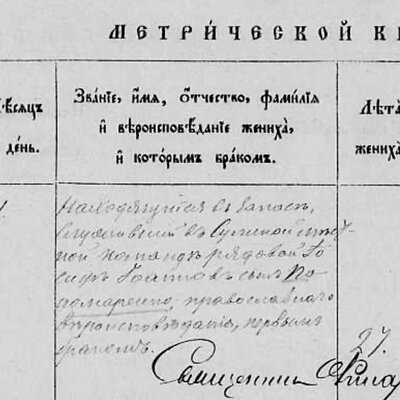 МЕТРИ́ЧЕСКОЙ К
МѢ́СЯЦЪ
де́нь.
Зва́нїе, и҆́мѧ, ѻ҆́тчество, фами́лїѧ
и҆ вѣроисповѣ́данїе жениха̀,
и҆ кото́рымъ бра́комъ.
Лѣ́та
жениха̀
Находящійся въ запасѣ,
служившій въ Сумской мѣст
ной командѣ рядовой Іо
сифъ Іоанновъ сынъ По
номаренко, православнаго
вѣроисповѣданія, первымъ
бракомъ.
27.
Священникъ